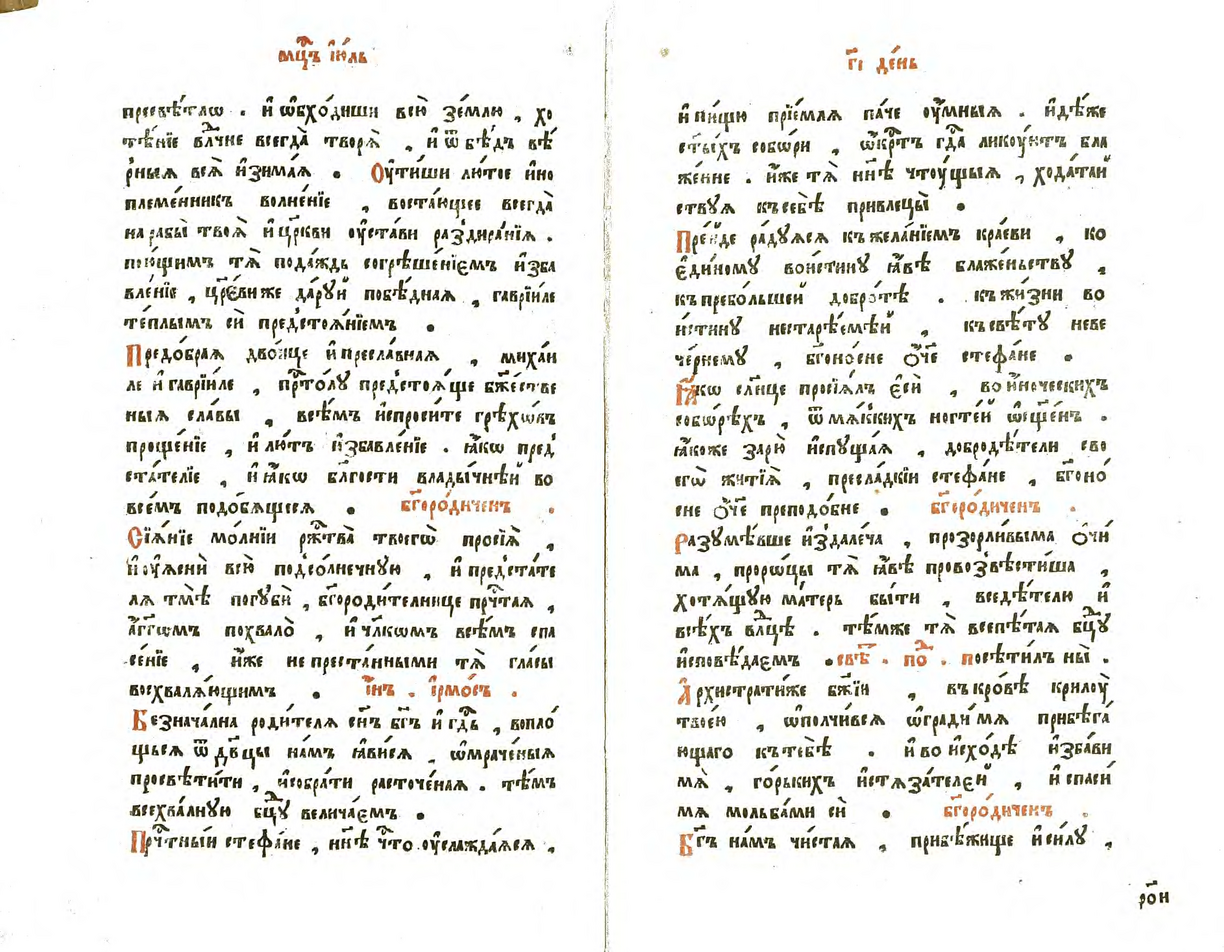 мц҃ъ ію́ль
пресвѣ́тлѡ . и҆ ѡ҆бхо́диши всю̀ зе́млю , хо
тѣ́нїе влⷣчне всегда̀ творѧ̀ , и҆ ѿ бѣ́дъ вѣ́
рныѧ всѧ̀ и҆зима́ѧ . Оу҆тиши лю́тое и҆но
пле́менникъ волне́нїе , воста́ющее всегда̀
на рабы̀ твоѧ̀ и҆ цр҃кви оу҆ста́ви раздира́нїѧ .
пою́щимъ тѧ̀ пода́ждь согрѣше́нїемъ и҆зба
вле́нїе , цр҃еви же да́руй побѣ́днаѧ , гаврїи́ле
те́плымъ си̑ предстоѧ́нїемъ .
Предо́браѧ дво́ице и҆ пресла́внаѧ , михаи́
ле и҆ гаврїи́ле , прⷭ҇то́лу предстоѧ́ще бж҃е́стве
ныѧ сла́вы , всѣ́мъ и҆спроси́те грѣхѡ́въ
проще́нїе , и҆ лю́тъ и҆збавле́нїе . ꙗ҆́кѡ пред
ста́телїе , и҆ ꙗ҆́кѡ бл҃гости влады́чнѣй во
всє́мъ подо́бѧщесѧ . бг҃оро́диченъ .
Сїѧ́нїе мо́лнїи ржⷭ҇тва̀ твоегѡ̀ просїѧ̀ ,
и҆ оу҆ѧснѝ всю̀ подсо́лнечную , и҆ предста́те
лѧ тмѣ̀ погубѝ , бг҃ороди́телнице прчⷭ҇таѧ ,
а҆́гг҃лѡмъ похвало̀ , и҆ чл҃кѡмъ всѣ́мъ спа
се́нїе , и҆̀же непреста́нными тѧ̀ гла́сы
восхвалѧ́ющимъ . и҆́нъ . і҆рмо́съ .
Безнача́лна роди́телѧ сн҃ъ бг҃ъ и҆ гдⷭ҇ь , вопло́
щьсѧ ѿ дв҃цы на́мъ ꙗ҆ви́сѧ , ѡ҆мраче́ныѧ
просвѣти́ти , и҆ собра́ти расточе́наѧ . тѣ́мъ
всехва́лную бцⷣу велича́емъ .
Прⷭ҇тный стефа́не , нн҃ѣ что оу҆слажда́ѧсѧ ,
г҃і де́нь
и҆ пи́щю прїе́млѧ па́че оу҆́мныѧ . и҆дѣ́же
ст҃ы́хъ собо́ри , ѡ҆́крⷭ҇тъ гдⷭ҇а лику́ютъ бла
же́нне . и҆̀же тѧ̀ нн҃ѣ чту́щыѧ , хода́тай
ствуѧ къ себѣ̀ привлецы̀ .
Пре́иде ра́дуѧсѧ къ жела́нїемъ кра́еви , ко
є҆ди́ному вои́стину ꙗ҆́вѣ блаже́ньству ,
къ пребо́льшей добро́тѣ . къ жи́зни во
и́стину нестарѣ́емѣй , къ свѣ́ту неве
че́рнему , бг҃оно́сне ѻ҆́ч҃е стефа́не .
Ꙗ҆́кѡ сл҃нце просїѧ́лъ є҆сѝ , во и҆́ноческихъ
собо́рѣхъ , ѿ мѧ́кихъ ногте́й ѡ҆сщ҃е́нъ .
ꙗ҆́коже зарю̀ и҆спуща́ѧ , добродѣ́тели сво
егѡ̀ житїѧ̀ , пресла́дкїи стефа́не , бг҃оно́
сне ѻ҆́ч҃е преподо́бне . бг҃оро́диченъ .
Разумѣ́вше и҆здале́ча , прозорли́выма ѻ҆чи́
ма , проро́цы тѧ̀ ꙗ҆́вѣ провозвѣсти́ша ,
хотѧ́щую ма́терь бы́ти , вседѣ́телю и҆
всѣ́хъ влⷣцѣ . тѣ́мже тѧ̀ всепѣ́таѧ бцⷣу
и҆сповѣ́даемъ . свѣ̑ . по̑ . посѣти́лъ ны̀ .
А҆рхистрати́же бж҃їи , въ кро́вѣ крилоу̀
твоє́ю , ѡ҆полчи́всѧ ѡ҆градѝ мѧ̀ прибѣга́
ющаго къ тебѣ̀ . и҆ во и҆схо́дѣ и҆зба́ви
мѧ̀ , го́рькихъ и҆стѧза́телей , и҆ спаси́
мѧ мольба́ми си̑ . бг҃оро́диченъ .
Бг҃ъ на́мъ чи́стаѧ , прибѣ́жище и҆ си́лу ,
рѻ҃и